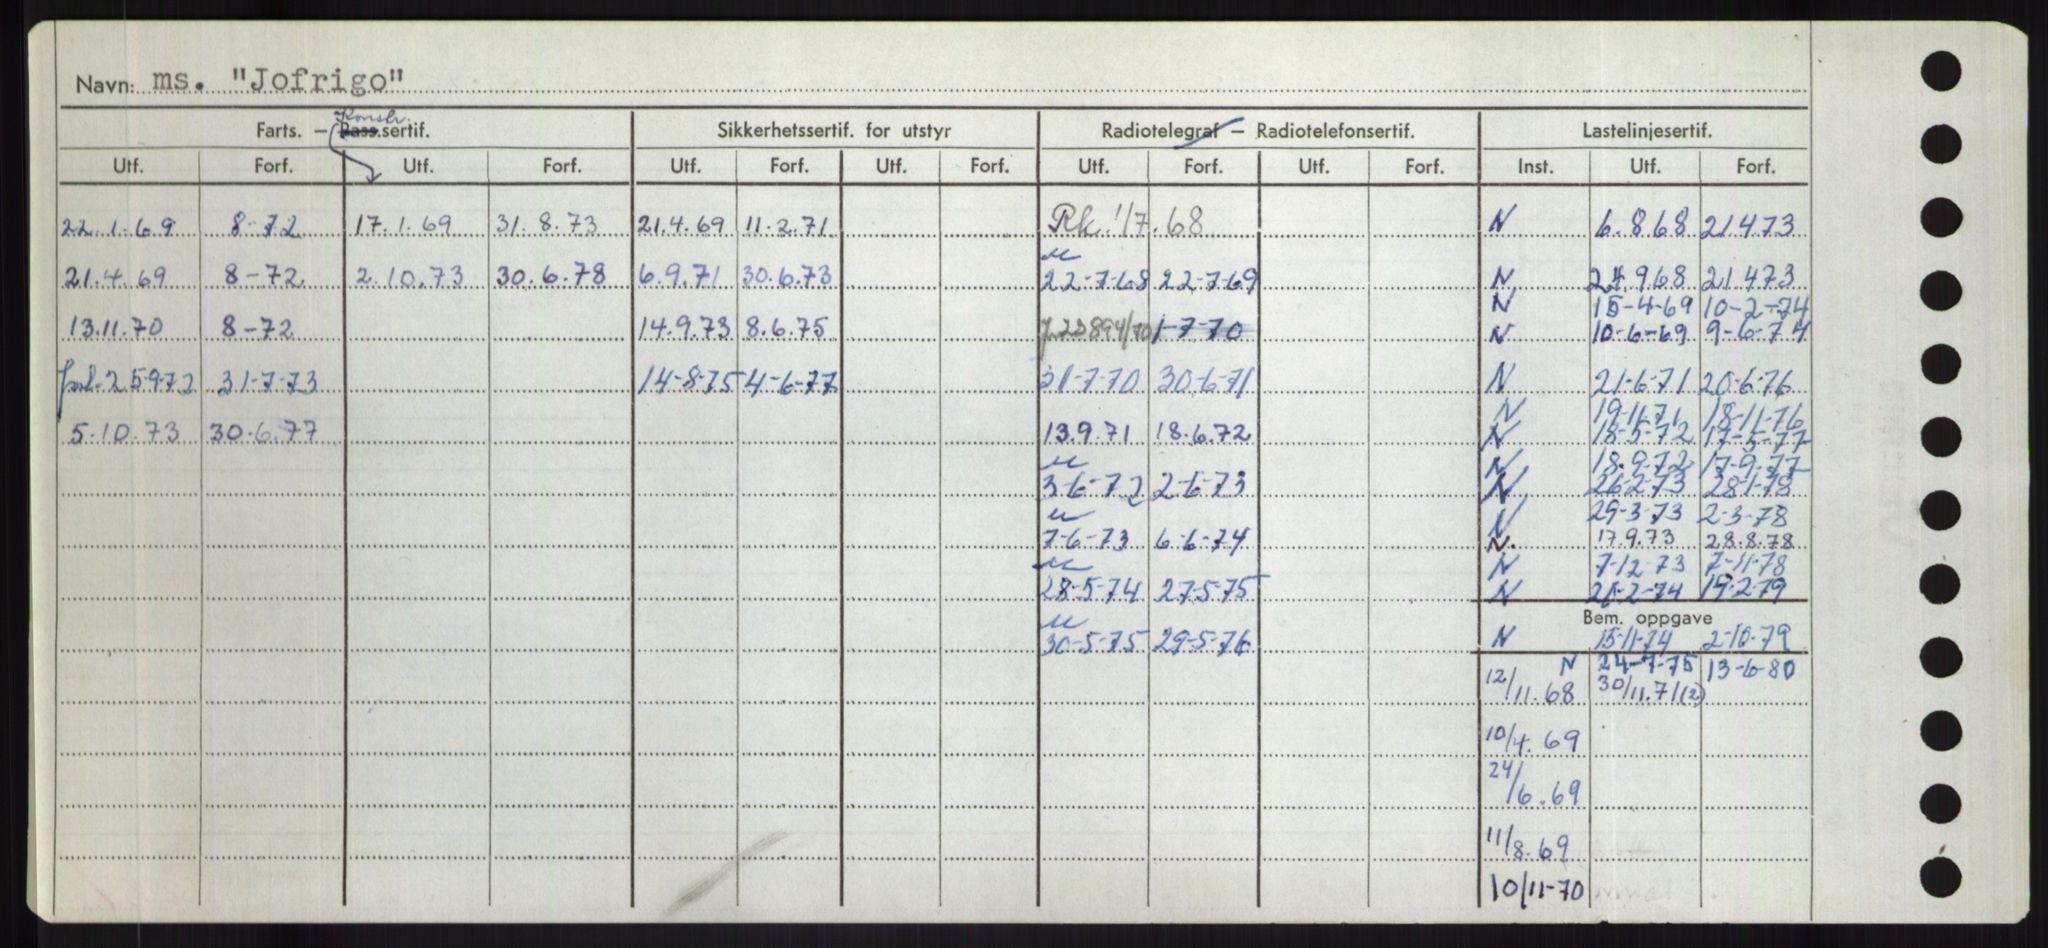 Navn: ms. "Jofrigo"
Konstr.
Farts. – Pass.sertif. Sikkerhetssertif. for utstyr Radiotelegraf – Radiotelefonsertif. Lastelinjesertif.
Utf. Forf. Utf. Forf. Utf. Forf. Utf. Forf. Utf. Forf. Utf. Forf. Inst. Utf. Forf.
22.1.69 8-72 17.1.69 31.8.73 21.4.69 11.2.71 Rk. 1/7.68 N 6.868 21473
21.4.69 8-72 2.10.73 30.6.78 6.9.71 30.6.73 22-7-68 22-7-69 N 24.968 21.473
N 15-4-69 10-2-74
13.11.70 8-72 14.9.73 8.6.75 1-7-70 N 10-6-69 9-6-74
31-7-73 14-8-75 4-6-77 31-7-70 30-6-71 N 21-6-71 20-6-76
N 19-11-71 18-11-76
5.10.73 30.6.77 13.9.71 18.6.72 N 18-5-72 17-5-77
N 18.9.72 17-9-77
3-6-72 2-6-73 N 26-2-73 28-1-78
N 29-3-73 2-3-78
7-6-73 6-6-74 N. 17.9.73 28.8.78
N 7-12-73 7-11-78
28-5-74 27-5-75 N 2-74 19-2-79
Bem. oppgave
30-5-75 29-5-76 N 15-11-74 2-10-79
N 24-7-75 13-6-80
12/11.68 30/11.71(2)
10/4.69
24/6.69
11/8.69
10/11-70